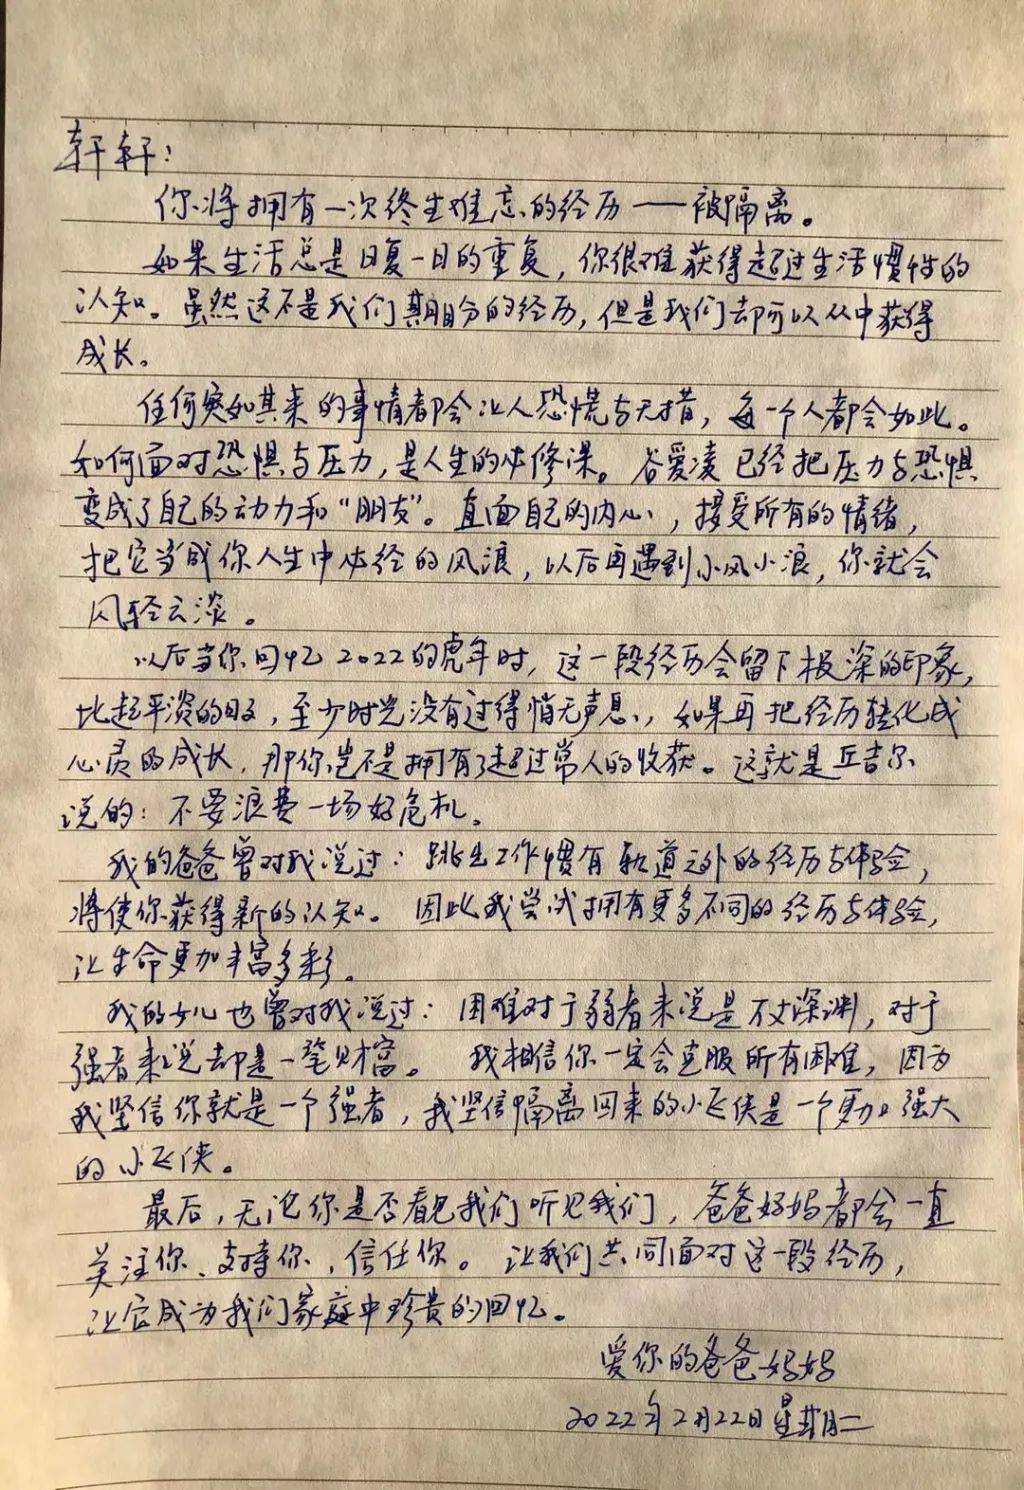 轩轩：
你将拥有一次终生难忘的经历——被隔离。
如果生活总是日复一日的重复，你很难获得超过生活惯性的
认知。虽然这不是我们期盼的经历，但是我们却可以从中获得
成长。
任何突如其来的事情都会让人恐慌与无措，每一个人都会如此。
如何面对恐惧与压力，是人生的必修课。谷爱凌已经把压力与恐惧
变成了自己的动力和“朋友”。直面自己的内心，接受所有的情绪，
把它当成你人生中必经的风浪，以后再遇到小风小浪，你就会
风轻云淡。
以后当你回忆2022的虎年时，这一段经历会留下极深的印象，
比起平淡的日子，至少时光没有过得悄无声息，如果再把经历转化成
心灵的成长，那你岂不是拥有了超过常人的收获。这就是丘吉尔
说的：不要浪费一场好危机。
我的爸爸曾对我说过：跳出工作惯有轨道之外的经历与体验，
将使你获得新的认知。因此我尝试拥有更多不同的经历与体验，
让生命更加丰富多彩。
我的女儿也曾对我说过：困难对于弱者来说是万丈深渊，对于
强者来说却是一笔财富。我相信你一定会克服所有困难，因为
我坚信你就是一个强者，我坚信隔离回来的小飞侠是一个更加强大
的小飞侠。
最后，无论你是否看见我们听见我们，爸爸妈妈都会一直
关注你、支持你，信任你。让我们共同面对这一段经历，
让它成为我们家庭中珍贵的回忆。
爱你的爸爸妈妈
2022年2月22日星期二